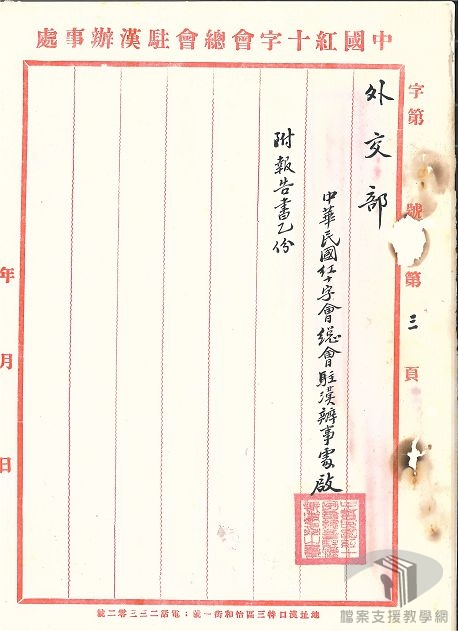 中國紅十字會總會駐漢辦事處
字第 號第三頁
外交部
中華民國紅十字會總會駐漢辦事處啟
附報告書乙份
年 月 日
地址漢口特三區怡和街一號：電話二三三零二號
檔案支援教學網